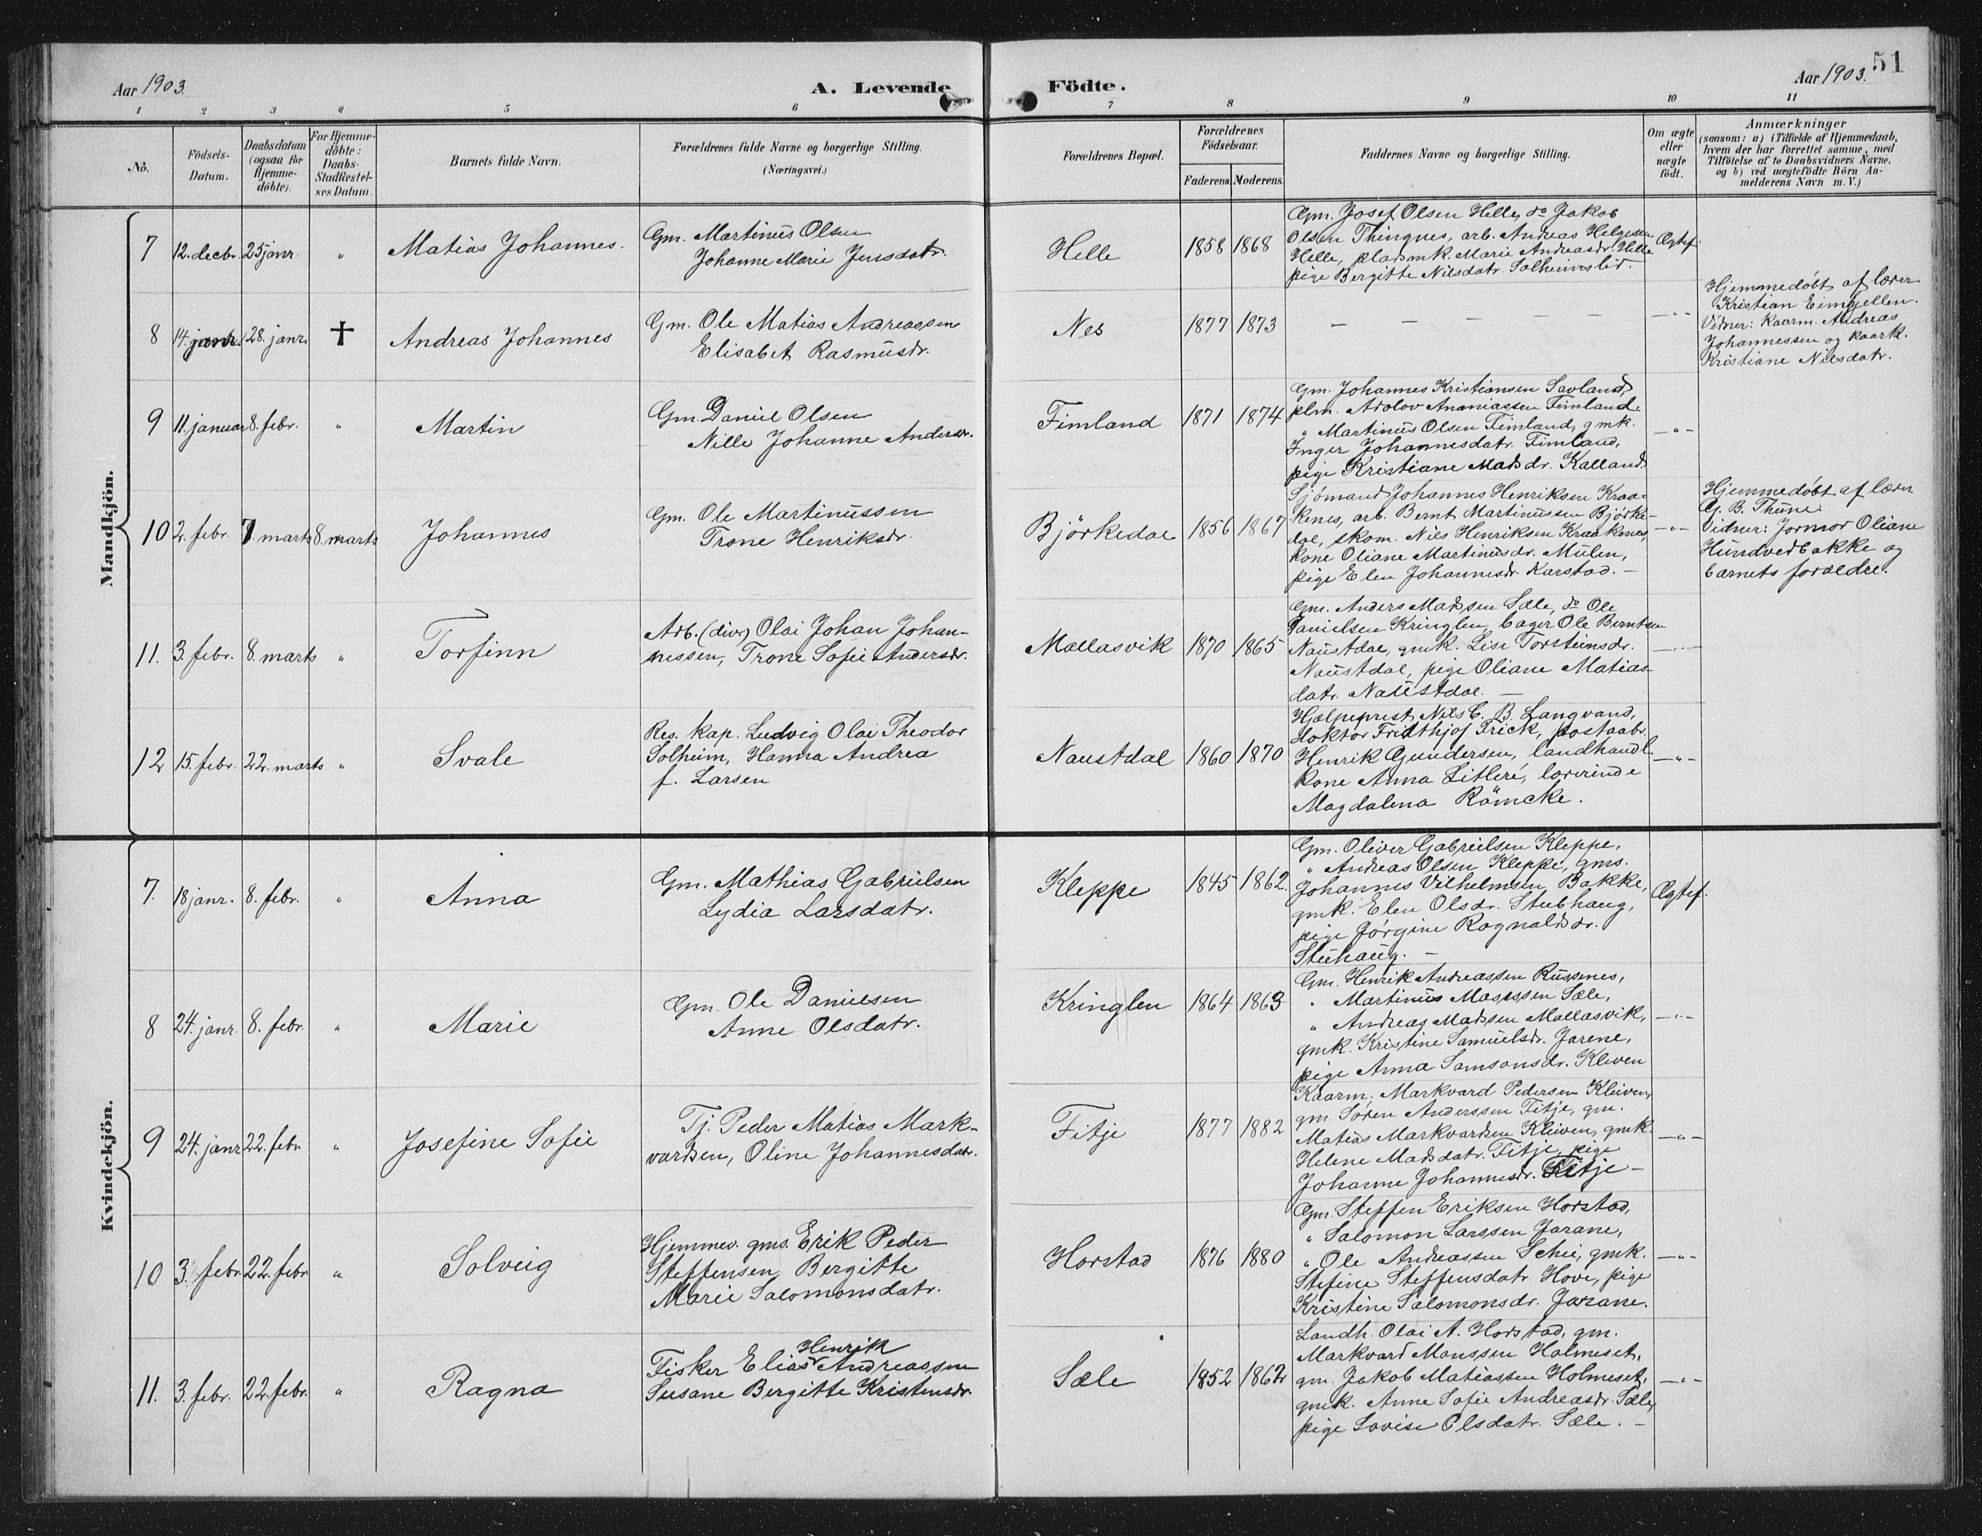 Aar 1903.
A. Levende
Födte.
Aar 1903.
51
1 2 3 4 5 6 7 8 9 10 11
No.
Födsels-
Datum.
Daabsdatum
(ogsaa for
Hjemme-
döbte).
For Hjemme-
döbte:
Daabs-
Stadfæstel-
ses Datum.
Barnets fulde Navn.
Forældrenes fulde Navne og borgerlige Stilling.
(Næringsvei.)
Forældrenes Bopæl.
Forældrenes
Födselsaar.
Faderens. Moderens.
Faddernes Navne og borgerlige Stilling.
Om ægte
eller
uægte
födt.
Anmærkninger
(saasom: a) i Tilfælde af Hjemmedaab,
hvem der har forrettet samme, med
Tilföielse af to Daabsvidners Navne.
og b) ved uægtefödte Börn An-
melderens Navn m. V.)
Mandkjön.
7 12. decbr. 25 janr. " Matias Johannes.
Gm. Martinus Olsen
Johanne Marie Jensdatr.
Helle 1858 1868
Gm. Josef Olsen Helle, do Jakob
Olsen Thingnes, arb. Andreas Helgesen
Helle, pladsmk. Marie Andreasdr. Helle
pige Bergitte Nilsdatr. Solheimslid.
Ægtef.
8 14. janr. 28. janr. † Andreas Johannes
Gm. Ole Matias Andreassen
Elisabet Rasmusdr.
Nes 1877 1873 — — — — — —"—
Hjemmedøbt af lærer
Kristian Eimhjellen.
Vidner: Kaarm. Andreas
Johannessen og kaark.
Kristiane Nilsdatr.
9 11. januar 8. febr. " Martin
Gm. Daniel Olsen
Nille Johanne Andersdr.
Fimland 1871 1874
Gm. Johannes Kristiansen Savland,
plm. Adolov Ananiassen Fimland
" Martinus Olsen Fimland, gmk.
Inger Johannesdatr. Fimland,
pige Kristiane Madsdr. Kalland.
—"—
10 2. febr. 7. marts 8 marts Johannes
Gm. Ole Martinussen
Trone Henriksdr.
Bjørkedal 1856 1867
Sjømand Johannes Henriksen Kraa-
kenes, arb. Bernt Martinussen Bjørke-
dal, skom. Nils Henriksen Kraakenes,
kone Oliane Martinusdr. Mulen,
pige Elen Johannesdr. Karstad. —
—"—
Hjemmedøbt af lærer
G. B. Thune.
Vidner: Jormor Oliane
Hundvedbakke og
barnets forældre.
11. 3. febr. 8. marts " Torfinn
Arb. (div) Olai Johan Johan-
nessen, Trone Sofie Andersdr.
Mallasvik 1870 1865
Gm. Anders Madsen Sæle, do Ole
Danielsen Kringlen, bager Ole Berntsen
Naustdal, gmk. Lise Torsteinsdr.
Naustdal, pige Oliane Matias-
datr. Naustdal. —
—"—
12 15. febr. 22. marts " Svale
Res. kap. Ludvig Olai Theodor
Solheim, Hanna Andrea
f. Larsen
Naustdal 1860 1870
Hjælpeprest Nils C. B. Langvand,
doktor Fridthjof Frick, postaabr.
Henrik Gundersen, landhandl.
kone Anna Litlere, lærerinde
Magdalena Römcke.
—"—
Kvindekjön.
7. 18 janr. 8. febr. " Anna
Gm. Mathias Gabrielsen
Lydia Larsdatr.
Kleppe 1845 1862.
Gm. Oliver Gabrielsen Kleppe,
" Andreas Olsen Kleppe, gms.
Johannes Vilhelmsen Bakke,
gmk. Elen Olsdr. Stubhaug,
pige Jørgine Ragnaldsdr.
Stuhaug. —
Ægtef.
8 24. janr. 8. febr. " Marie
Gm. Ole Danielsen
Anne Olsdatr.
Kringlen 1864 1863
Gm. Henrik Andreassen Russnes,
" Martinus Mosessen Sæle,
" Andreas Madsen Mallasvik,
gmk. Kristine Samuelsdr. Jarene,
pige Anna Samsonsdr. Kleiven
—"—
9 24. janr. 22. febr. " Josefine Sofie
Tj. Peder Matias Mark-
vardsen, Oline Johannesdatr.
Fitje 1877 1882
Kaarm. Markvard Pedersen Kleiven,
gm. Søren Anderssen Fitje, gm.
Matias Markvardsen Kleiven, gmk.
Helene Madsdatr. Fitje, pige
Johanne Johannesdr. Fitje —
—"—
10 3. febr. 22. febr. " Solveig
Hjemmev. gms. Erik Peder
Steffensen, Bergitte
Marie Salomonsdatr.
Horstad 1876 1880
Gm. Steffen Eriksen Horstad,
" Salomon Larssen Jarane,
" Ole Andreassen Schei, gmk.
Stefine Steffensdatr. Hove, pige
Kristine Salomonsdr. Jarane.
—"—
11. 3. febr. 22. febr. " Ragna
Henrik
Fisker Elias Andreassen
Susane Bergitte Kristensdr.
Sæle 1852 1862
Landh. Olai A. Horstad, gm.
Markvard Monssen Holmeset,
gm. Jakob Matiassen Holmeset,
gmk. Anne Sofie Andreasdr. Sæle,
pige Lovise Olsdatr. Sæle. —
—"—